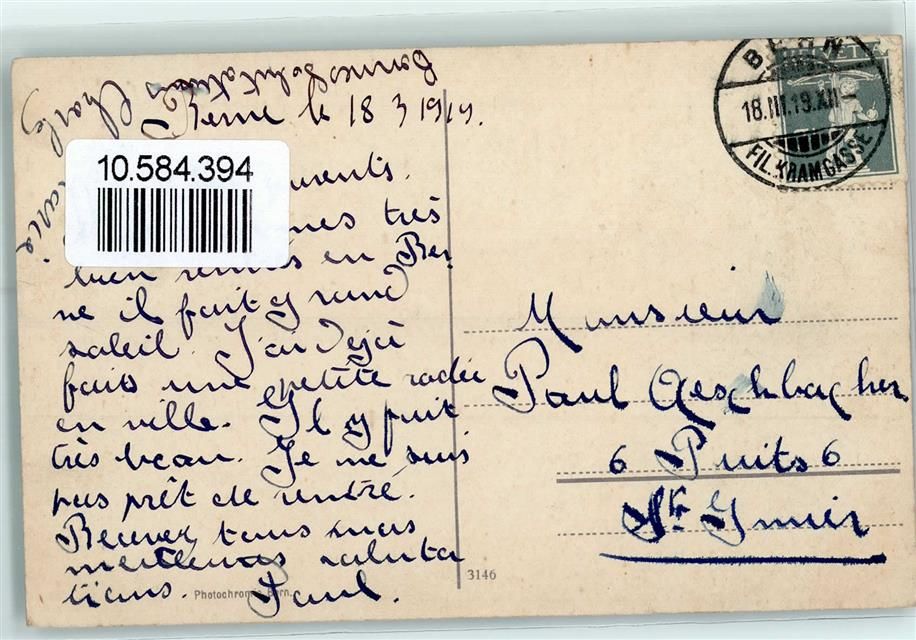 Bonnes Salutations Charles
Marie
Berne le 18 3 1919.
10.584.394
très
bien en Ber
ne il fait grand
soleil. J'ai dejà
faits une petite
en ville. Il y fait
très beau. Je ne suis
pas prêt de rentré.
Recevez tous mes
meilleures saluta
tions. Paul.
Photochromie Bern.
3146
BERN
18.III.19.XII-
FIL. KRAMGASSE
Monsieur
Paul Aeschbacher
6 Puits 6
St. Imier